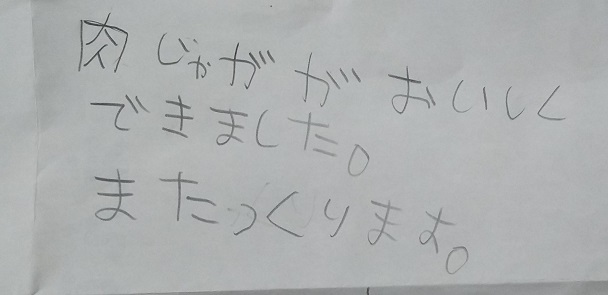 肉じゃががおいしく
できました。
またつくります。